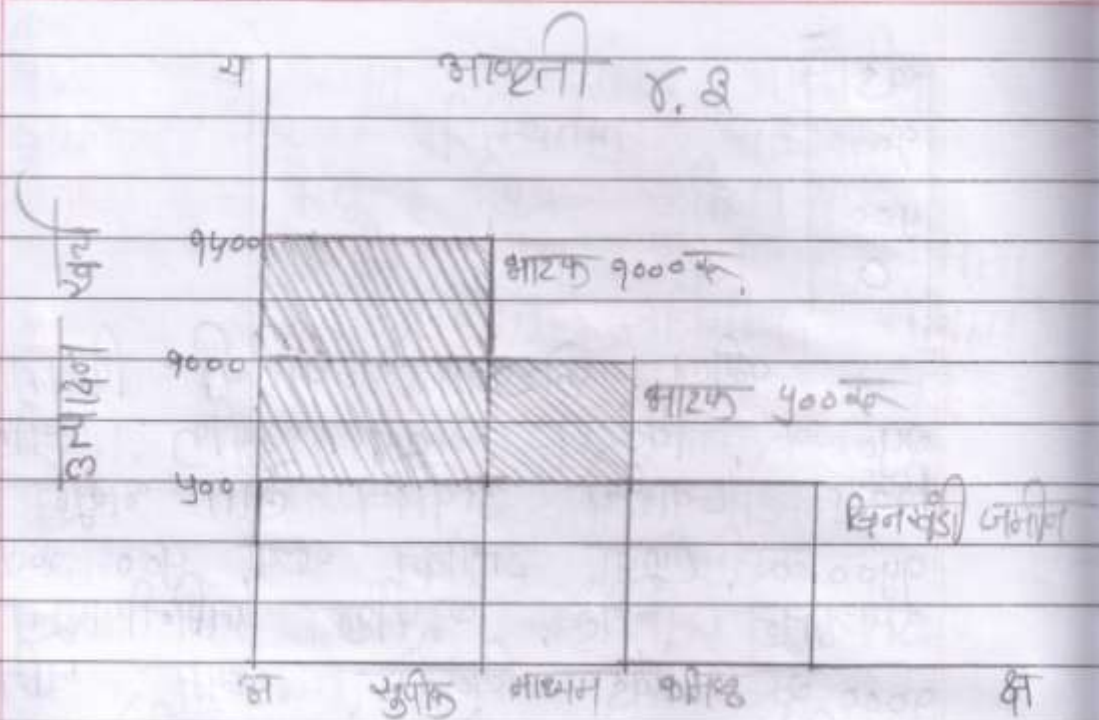 य
आकृती ४.३
उत्पादन खर्च
१५००
भाटक १००० रू.
१०००
भाटक ५०० रू
५००
बिनखंडी जमीन
अ सुपीक माध्यम कनिष्ठ क्ष